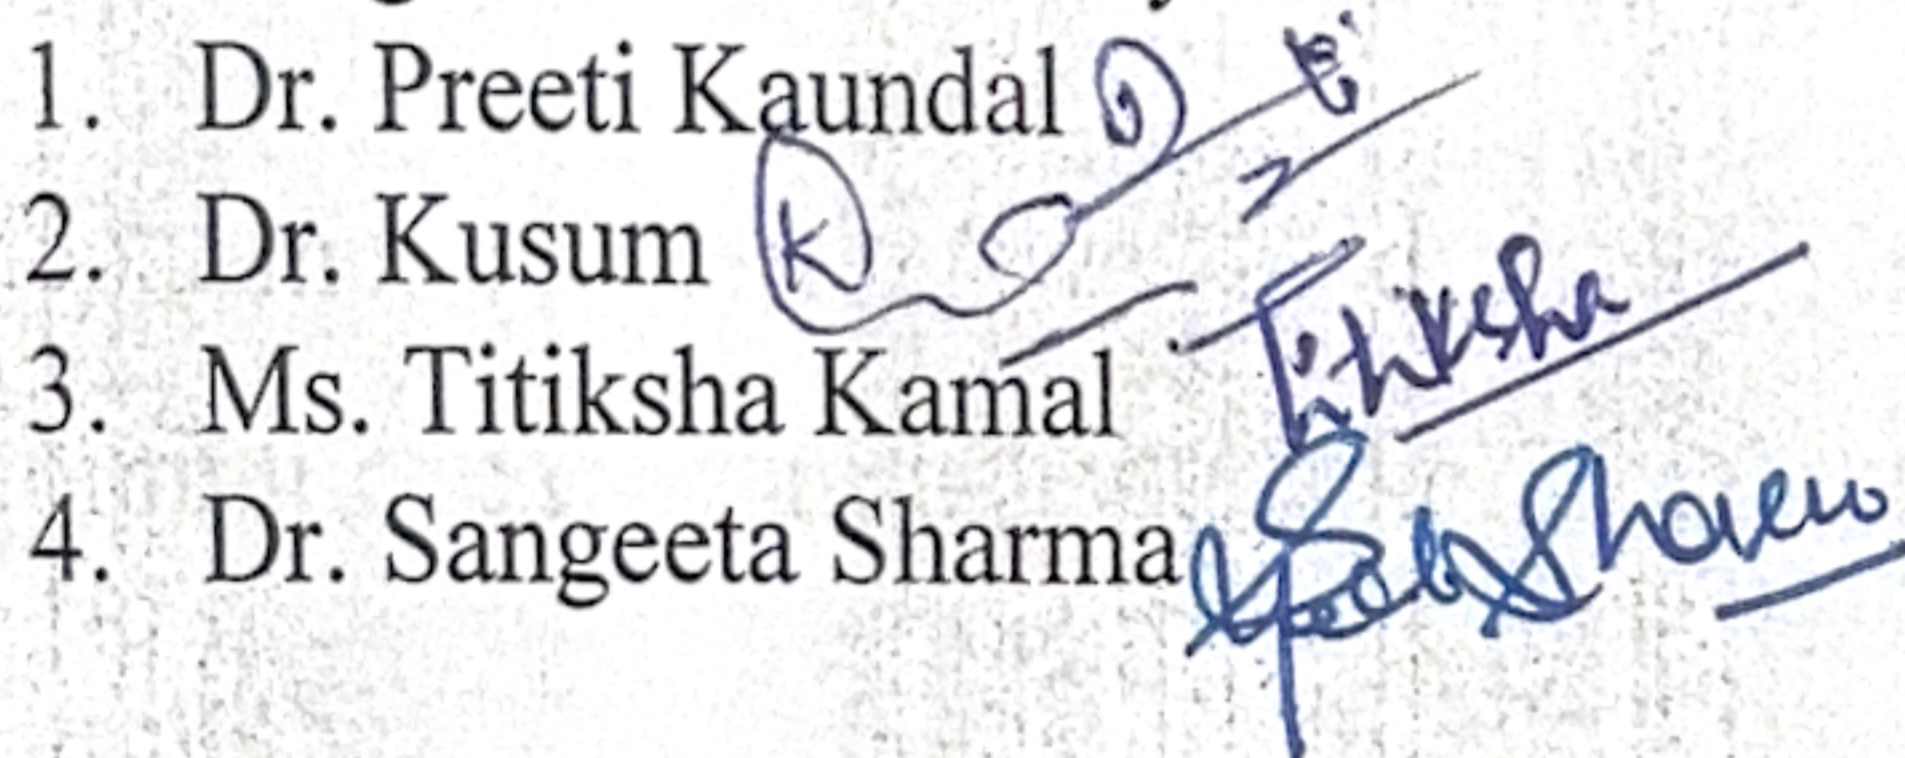 1. Dr. Preeti Kaundal
2. Dr. Kusum K
3. Ms. Titiksha Kamal Titiksha
4. Dr. Sangeeta Sharma Sharma